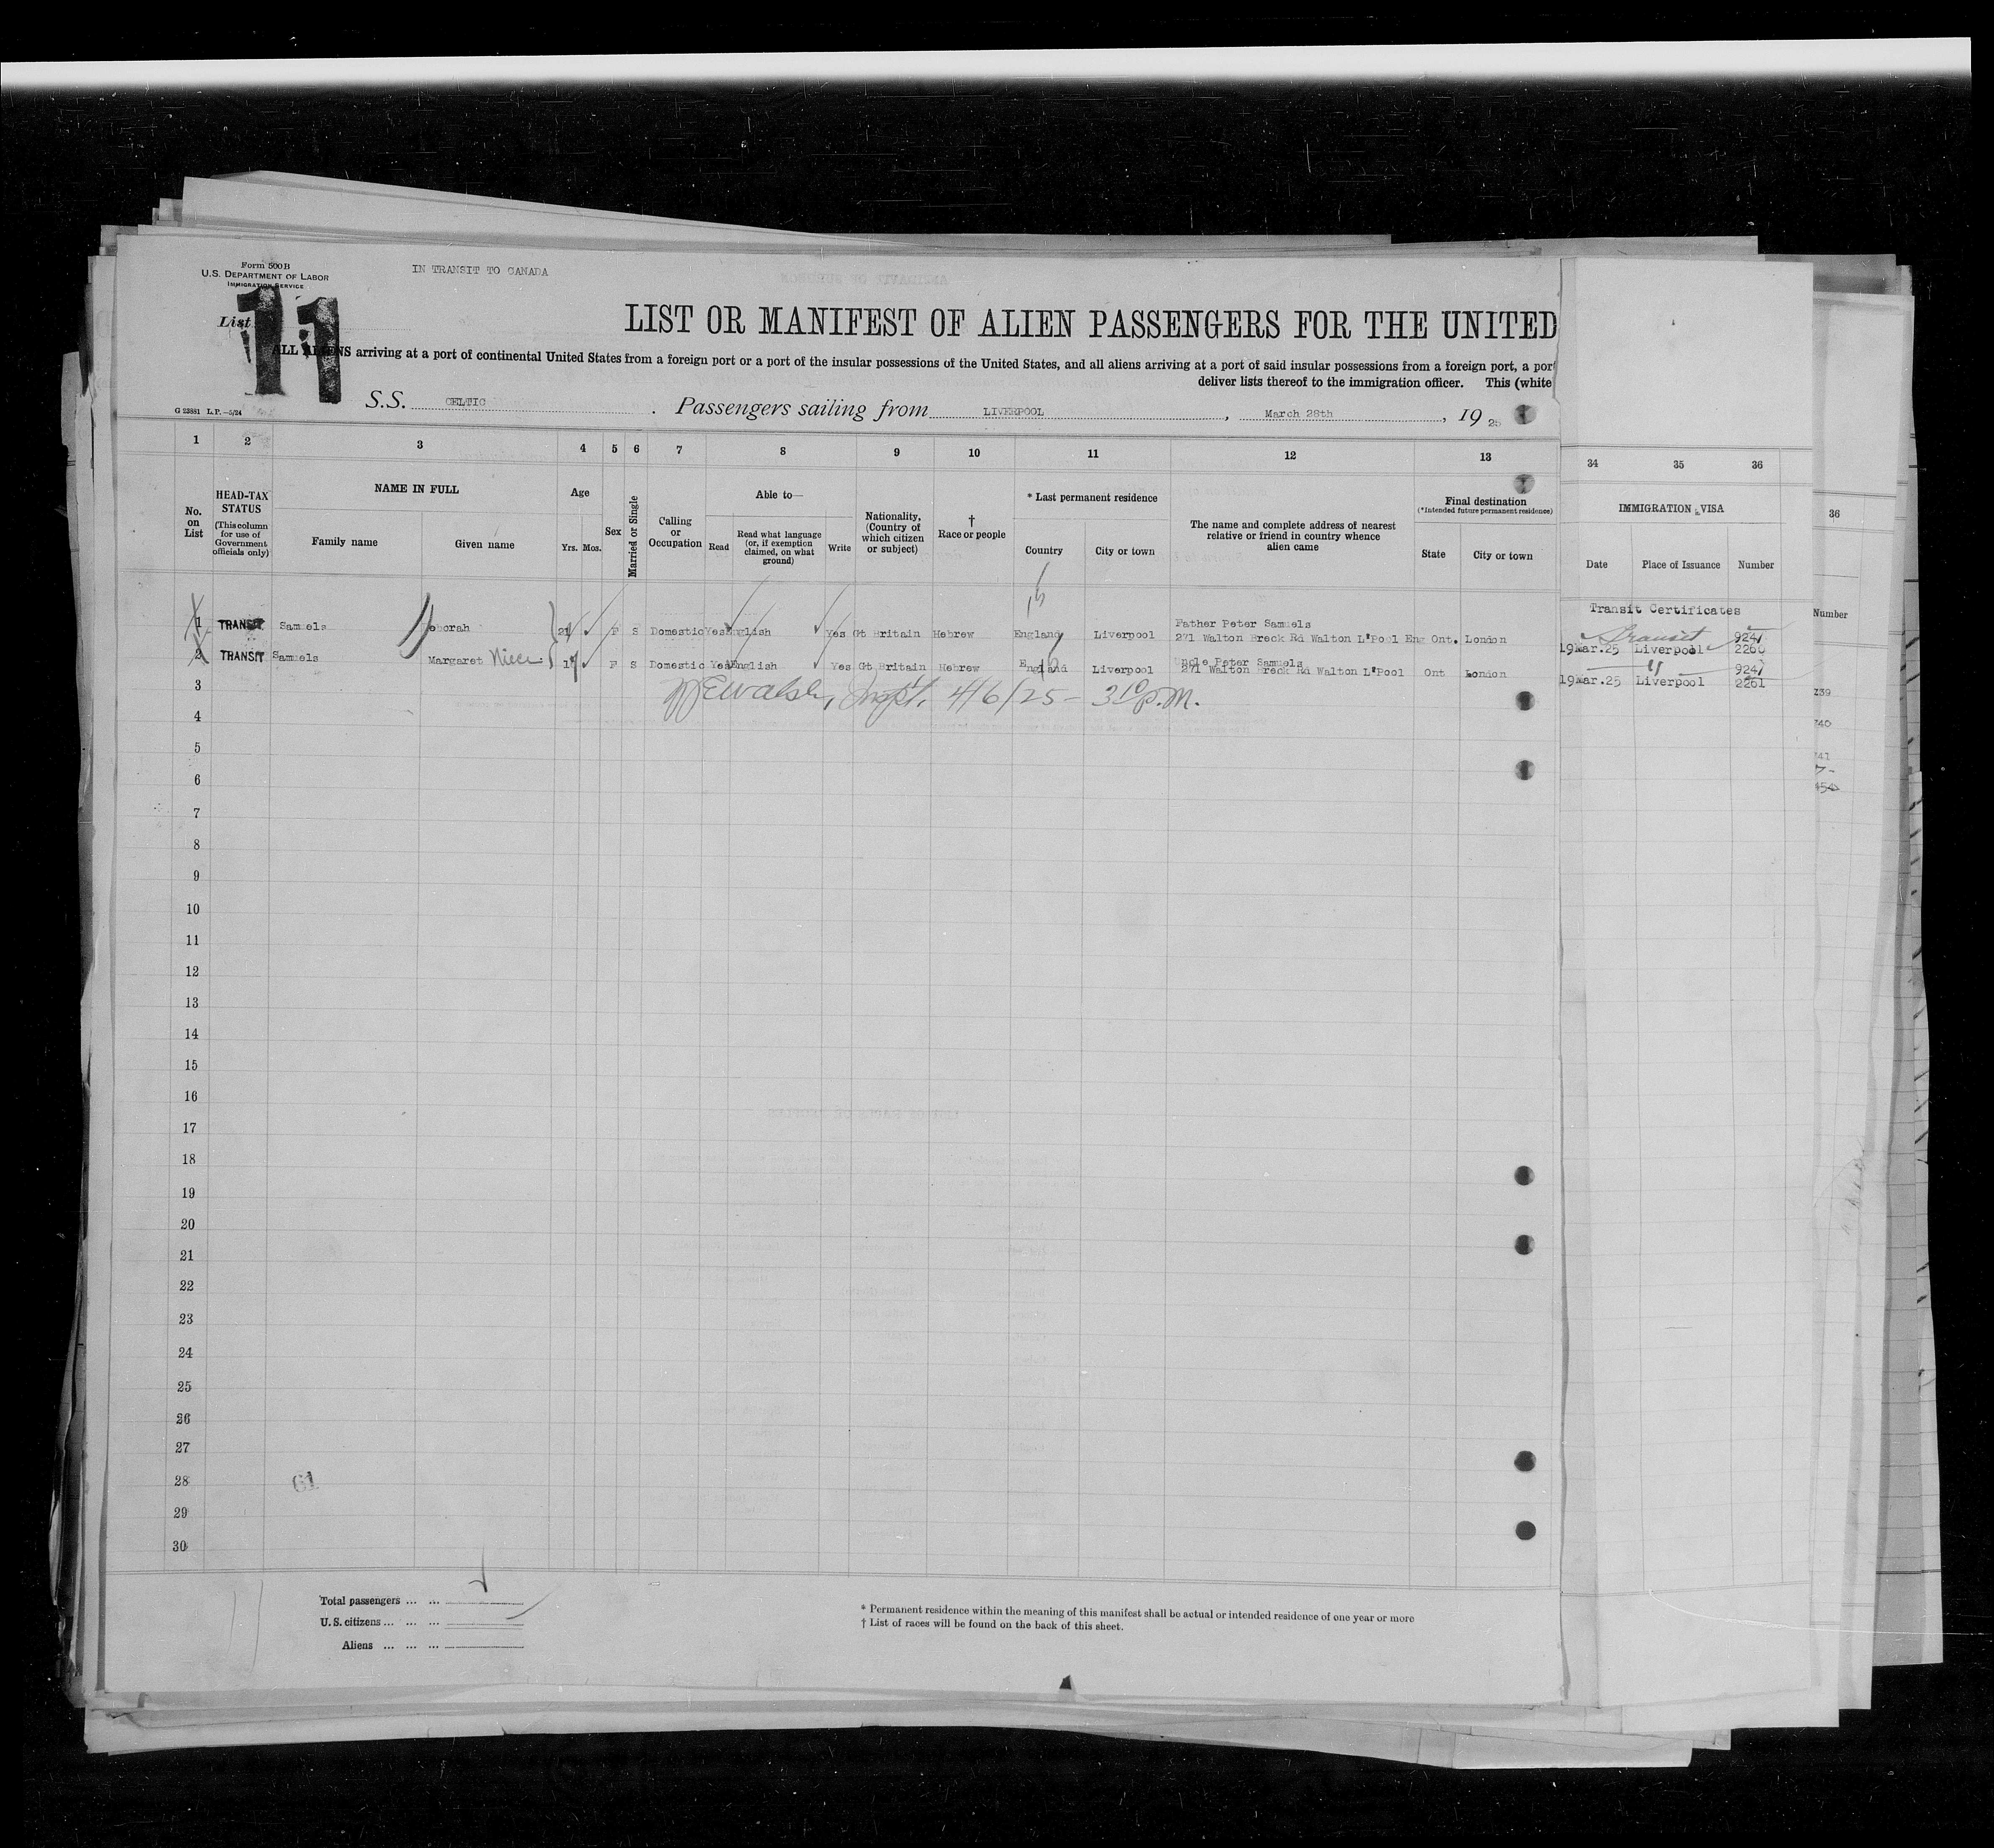 Form 500B
U.S. DEPARTMENT OF LABOR
IMMIGRATION SERVICE
IN TRANSIT TO CANADA
List 11
LIST OR MANIFEST OF ALIEN PASSENGERS FOR THE UNITED
ALL ALIENS arriving at a port of continental United States from a foreign port or a port of the insular possessions of the United States, and all aliens arriving at a port of said insular possessions from a foreign port, a por
deliver lists thereof to the immigration officer. This (white
G 23881 L.P.—5/24
S.S. CELTIC. Passengers sailing from LIVERPOOL, March 28th, 1925
1 2 3 4 5 6 7 8 9 10 11 12 13 34 35 36
No. on List
HEAD-TAX STATUS
(This column for use of Government officials only)
NAME IN FULL
Family name
Given name
Age
Yrs. Mos.
Sex
Married or Single
Calling or Occupation
Able to—
Read
Read what language (or, if exemption claimed, on what ground)
Write
Nationality, (Country of which citizen or subject)
† Race or people
* Last permanent residence
Country
City or town
The name and complete address of nearest relative or friend in country whence alien came
Final destination
(*Intended future permanent residence)
State
City or town
IMMIGRATION VISA
Date
Place of Issuance
Number
36
Number
Transit Certificates
1 TRANSIT Samuels Deborah 21 F S Domestic Yes English Yes Gt Britain Hebrew England Liverpool Father Peter Samuels
271 Walton Breck Rd Walton L'Pool Eng Ont. London 19Mar.25 Liverpool Transit 924 2260
2 TRANSIT Samuels Margaret Niece 17 F S Domestic Yes English Yes Gt Britain Hebrew England Liverpool Uncle Peter Samuels
271 Walton Breck Rd Walton L'Pool Ont London 19Mar.25 Liverpool " 924 2261
Walsh, Inspt. 4/6/25 - 3 10 P.M.
3
4
5
6
7
8
9
10
11
12
13
14
15
16
17
18
19
20
21
22
23
24
25
26
27
28 61
29
30
739
740
741
Total passengers ... ...
U.S. citizens ... ... ...
Aliens ... ... ...
* Permanent residence within the meaning of this manifest shall be actual or intended residence of one year or more
† List of races will be found on the back of this sheet.